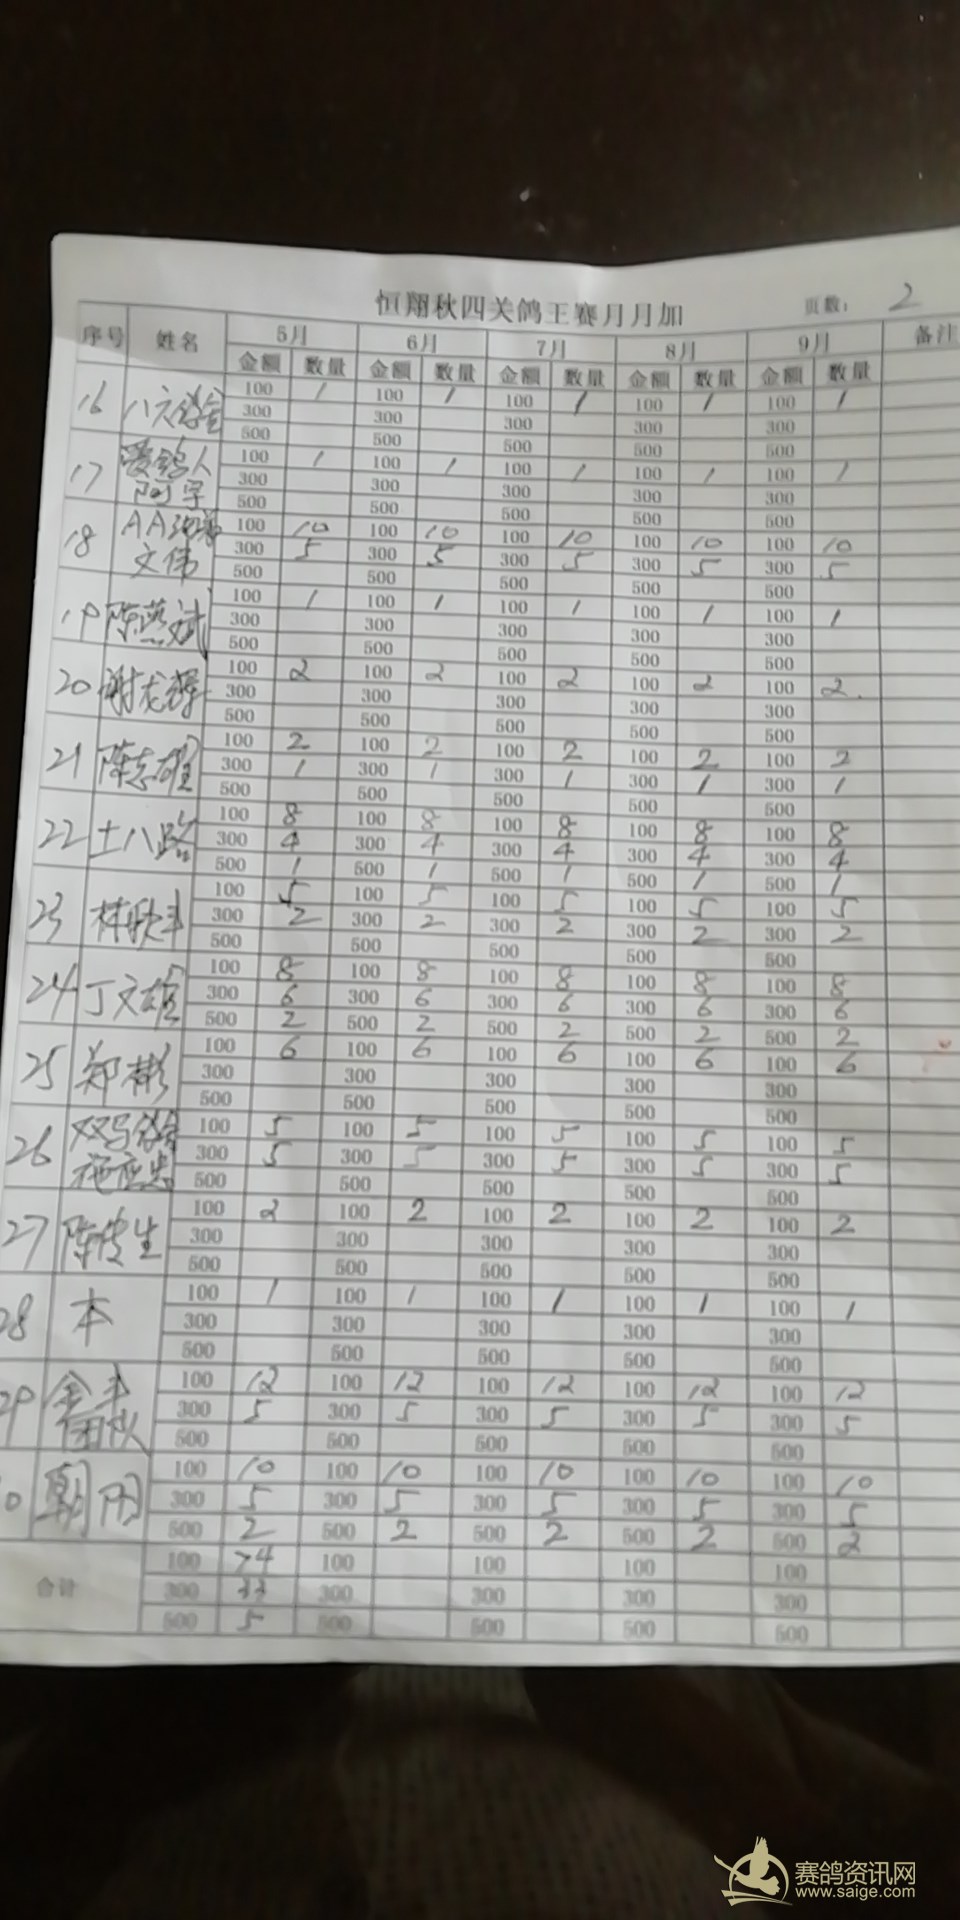 恒翔秋四关鸽王赛月月加 页数： 2
序号 姓名 5月 6月 7月 8月 9月 备注
金额 数量 金额 数量 金额 数量 金额 数量 金额 数量
16 八六鸽舍 100 1 100 1 100 1 100 1 100 1
300 300 300 300 300
500 500 500 500 500
17 爱鸽人阿宇 100 1 100 1 100 1 100 1 100 1
300 300 300 300 300
500 500 500 500 500
18 AA 文伟 100 10 100 10 100 10 100 10 100 10
300 5 300 5 300 5 300 5 300 5
500 500 500 500 500
19 陈燕斌 100 1 100 1 100 1 100 1 100 1
300 300 300 300 300
500 500 500 500 500
20 谢龙辉 100 2 100 2 100 2 100 2 100 2
300 300 300 300 300
500 500 500 500 500
21 陈志雄 100 2 100 2 100 2 100 2 100 2
300 1 300 1 300 1 300 1 300 1
500 500 500 500 500
22 土八路 100 8 100 8 100 8 100 8 100 8
300 4 300 4 300 4 300 4 300 4
500 1 500 1 500 1 500 1 500 1
23 林 100 5 100 5 100 5 100 5 100 5
300 2 300 2 300 2 300 2 300 2
500 500 500 500 500
24 丁文雄 100 8 100 8 100 8 100 8 100 8
300 6 300 6 300 6 300 6 300 6
500 2 500 2 500 2 500 2 500 2
25 郑彬 100 6 100 6 100 6 100 6 100 6
300 300 300 300 300
500 500 500 500 500
26 双马鸽舍施应忠 100 5 100 5 100 5 100 5 100 5
300 5 300 5 300 5 300 5 300 5
500 500 500 500 500
27 陈 生 100 2 100 2 100 2 100 2 100 2
300 300 300 300 300
500 500 500 500 500
28 本 100 1 100 1 100 1 100 1 100 1
300 300 300 300 300
500 500 500 500 500
29 100 12 100 12 100 12 100 12 100 12
300 5 300 5 300 5 300 5 300 5
500 500 500 500 500
0 朝阳 100 10 100 10 100 10 100 10 100 10
300 5 300 5 300 5 300 5 300 5
500 2 500 2 500 2 500 2 500 2
合计 100 74 100 100 100 100
300 33 300 300 300 300
500 5 500 500 500 500
赛鸽资讯网
www.saige.com